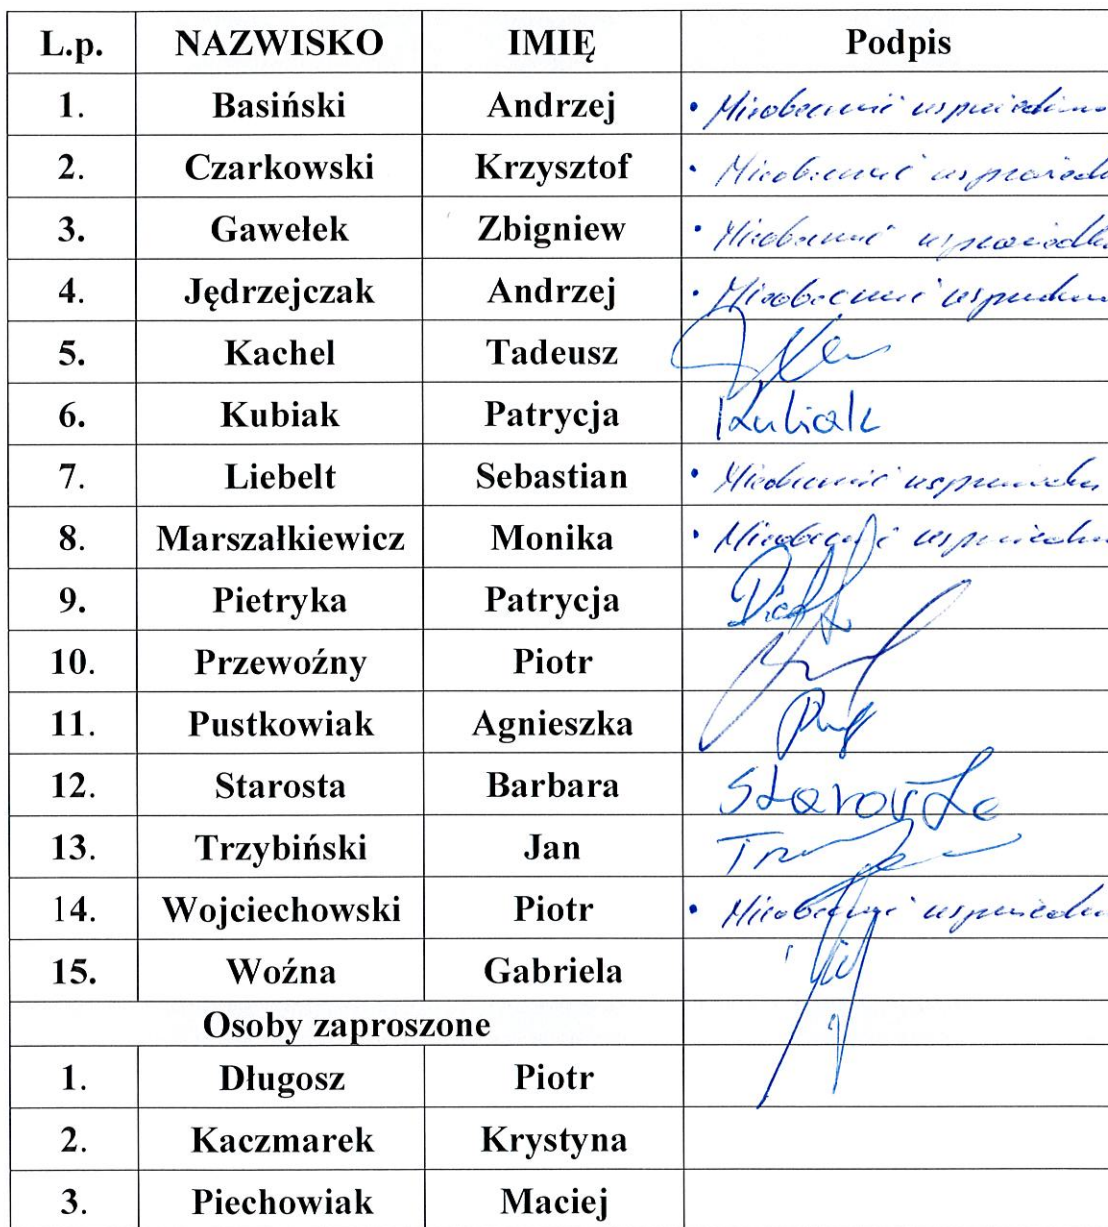 L.p. NAZWISKO IMIĘ Podpis
1. Basiński Andrzej • Nieobecność
2. Czarkowski Krzysztof • Nieobecność
3. Gawełek Zbigniew • Nieobecność
4. Jędrzejczak Andrzej • Nieobecność
5. Kachel Tadeusz
6. Kubiak Patrycja Kubiak
7. Liebelt Sebastian • Nieobecność
8. Marszałkiewicz Monika • Nieobecność
9. Pietryka Patrycja
10. Przewoźny Piotr
11. Pustkowiak Agnieszka
12. Starosta Barbara Starosta
13. Trzybiński Jan
14. Wojciechowski Piotr • Nieobecność
15. Woźna Gabriela
Osoby zaproszone
1. Długosz Piotr
2. Kaczmarek Krystyna
3. Piechowiak Maciej